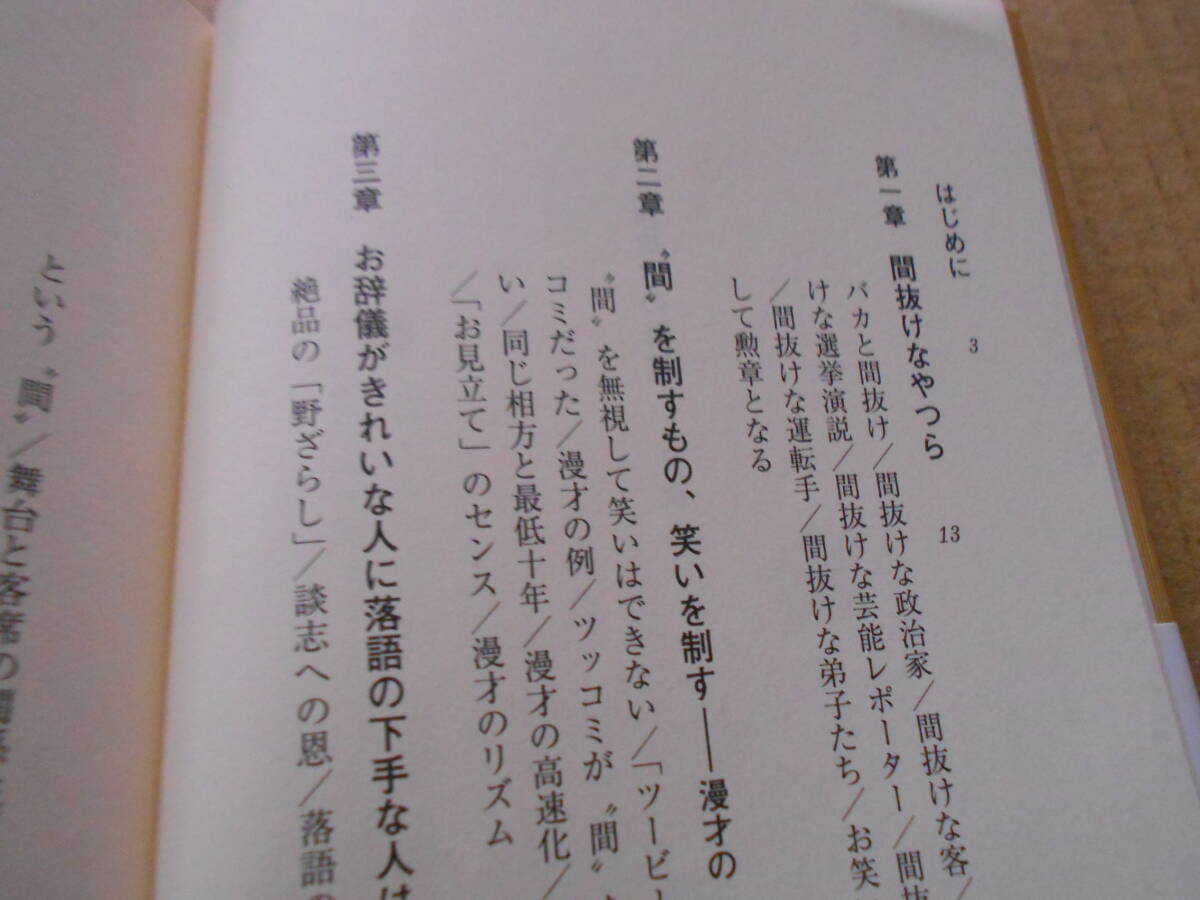 はじめに 3
第一章 間抜けなやつら 13
バカと間抜け/間抜けな政治家/間抜けな客/
けな選挙演説/間抜けな芸能レポーター/間抜
/間抜けな運転手/間抜けな弟子たち/お笑
して勲章となる
第二章 〝間〟を制すもの、笑いを制す──漫才の
〝間〟を無視して笑いはできない/「ツービー
コミだった/漫才の例/ツッコミが〝間〟
い/同じ相方と最低十年/漫才の高速化/
/「お見立て」のセンス/漫才のリズム
第三章 お辞儀がきれいな人に落語の下手な人は
絶品の「野ざらし」/談志への恩/落語の
という〝間〟/舞台と客席の